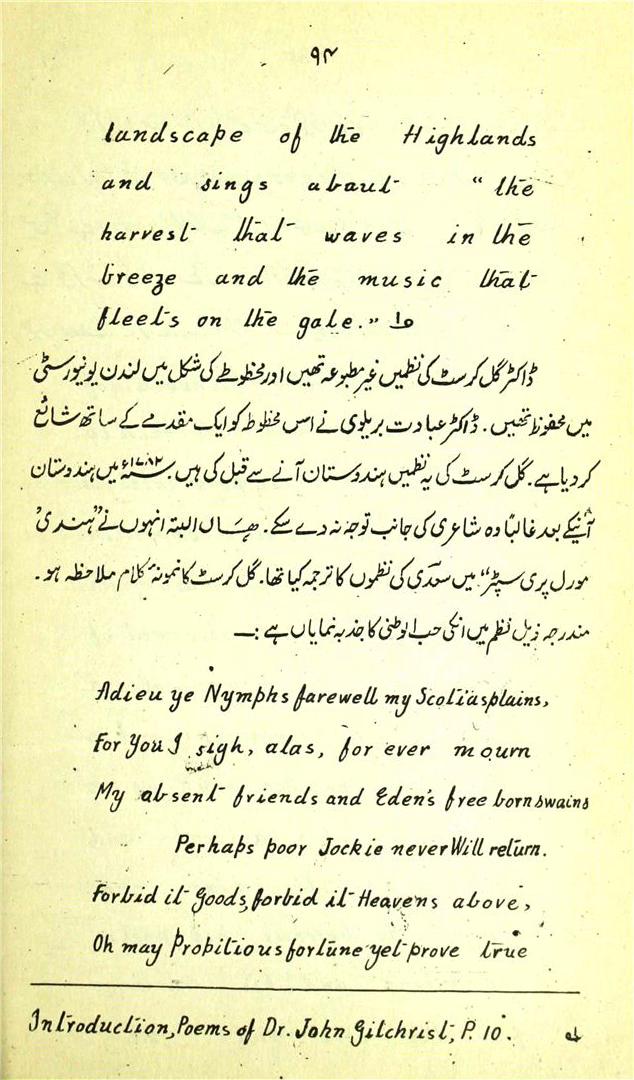 ۹۴
landscape of the Highlands
and sings about "the
harvest that waves in the
breeze and the music that
fleets on the gale." ۱ے
ڈاکٹر گل کرسٹ کی نظمیں غیر مطبوعہ تھیں اور مخطوطے کی شکل میں لندن یونیورسٹی
میں محفوظ تھیں۔ ڈاکٹر عبادت بریلوی نے اس مخطوطہ کو ایک مقدمے کے ساتھ شائع
کر دیا ہے۔ گل کرسٹ کی یہ نظمیں ہندوستان آنے سے قبل کی ہیں۔ ۱۷۸۲ء میں ہندوستان
آنیکے بعد غالباً وہ شاعری کی جانب توجہ نہ دے سکے۔ ہاں البتہ انہوں نے "ہندی
مورل پری سپٹر" میں سعدی کی نظموں کا ترجمہ کیا تھا۔ گل کرسٹ کا نمونۂ کلام ملاحظہ ہو۔
مندرجہ ذیل نظم میں انکی حب الوطنی کا جذبہ نمایاں ہے :—
Adieu ye Nymphs farewell my Scotias plains,
For You I sigh, alas, for ever mourn
My absent friends and Eden's free born swains
Perhaps poor Jockie never Will return.
Forbid it Goods, forbid it Heavens above,
Oh may Propitious fortune yet prove true
Introduction, Poems of Dr. John Gilchrist, P. 10. ۱ے